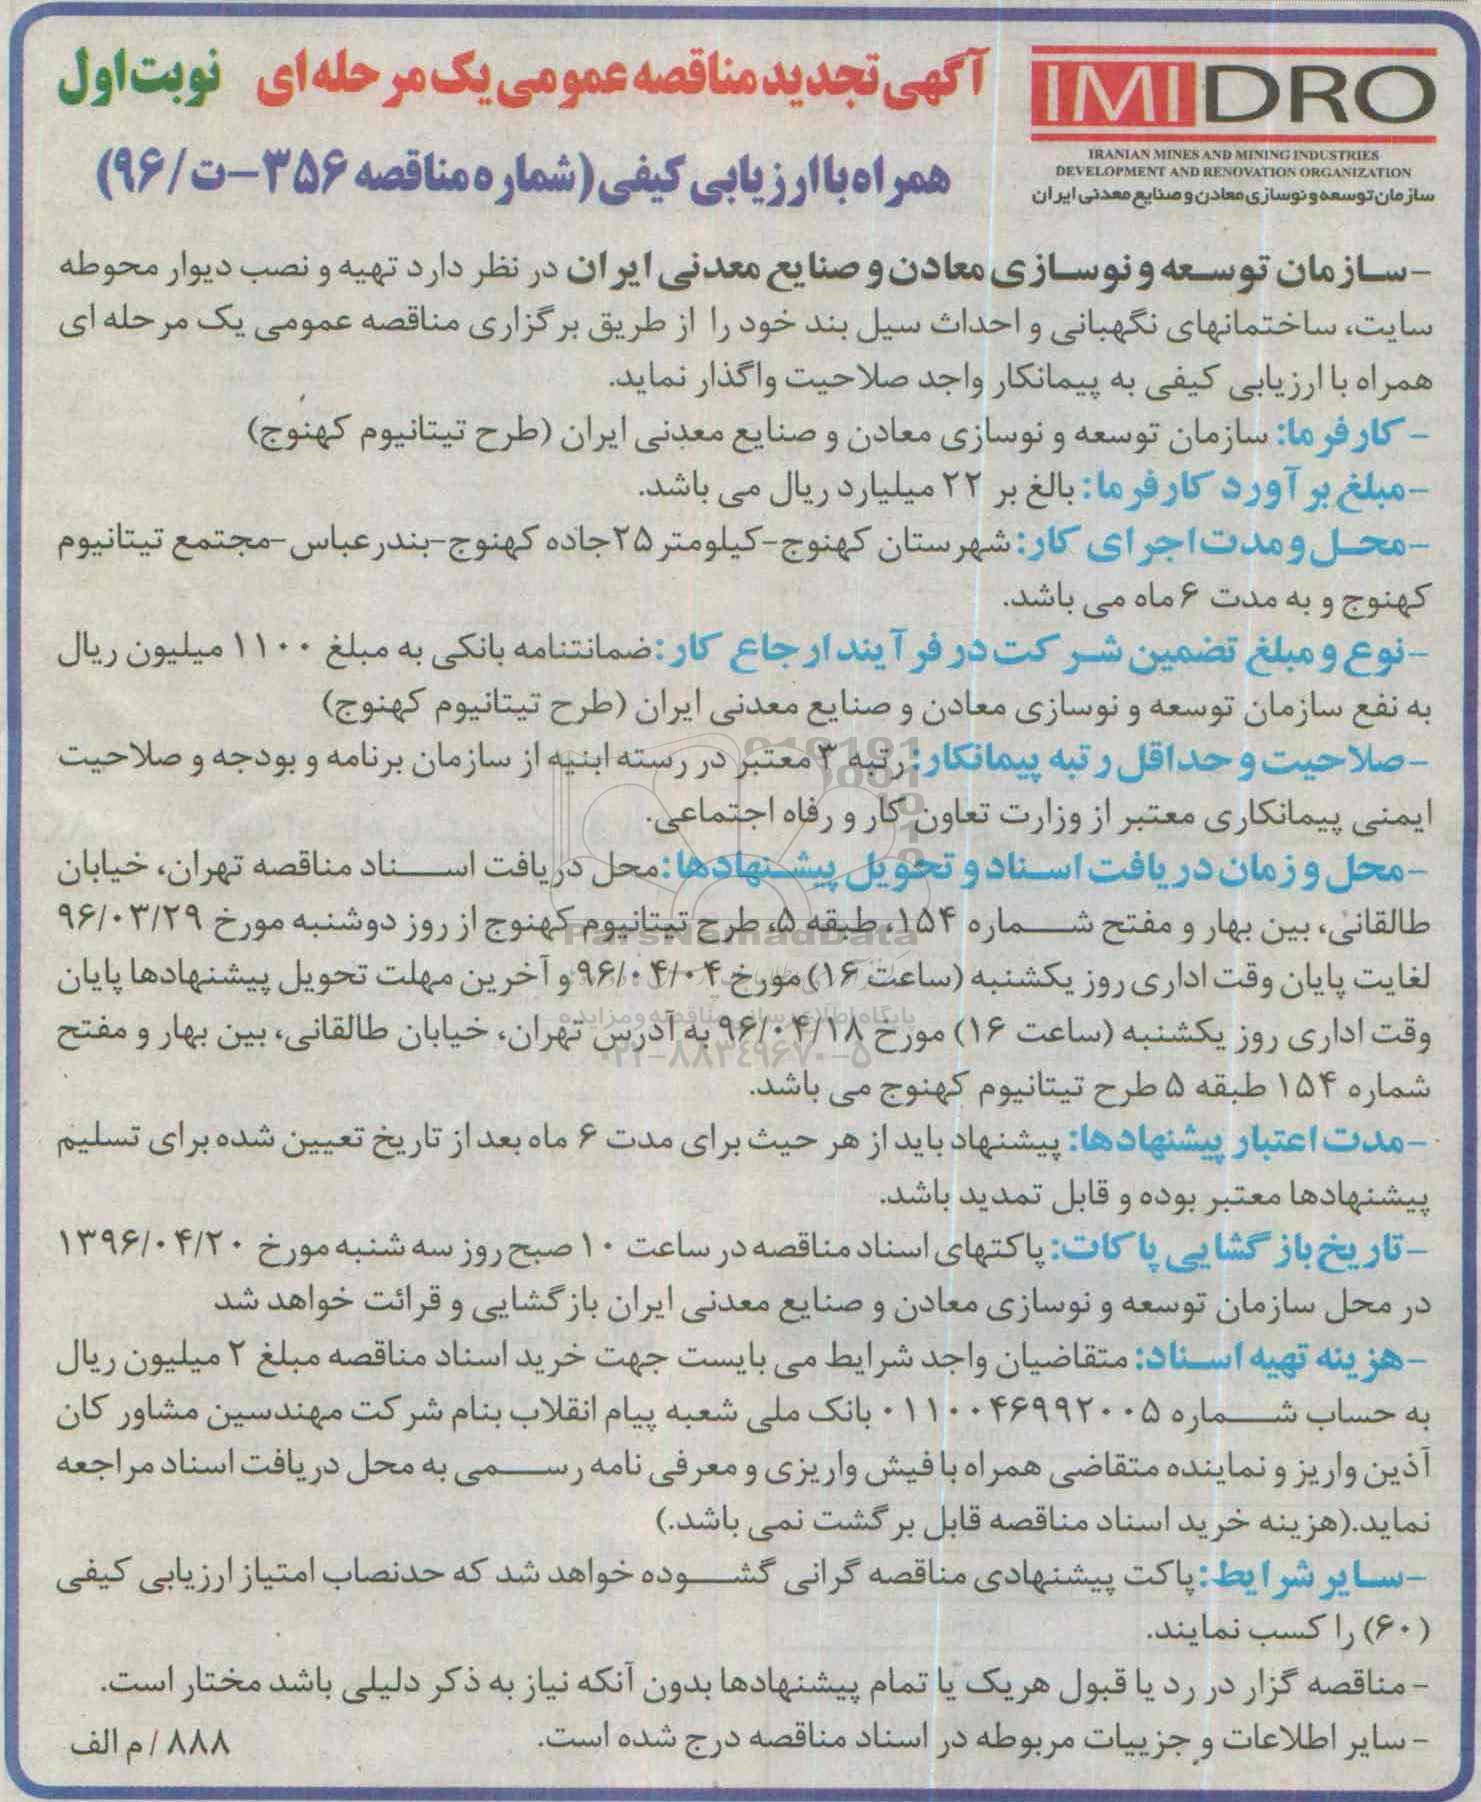 IMIDRO
IRANIAN MINES AND MINING INDUSTRIES
DEVELOPMENT AND RENOVATION ORGANIZATION
سازمان توسعه و نوسازی معادن و صنایع معدنی ایران
آگهی تجدید مناقصه عمومی یک مرحله ای نوبت اول
همراه با ارزیابی کیفی (شماره مناقصه ۳۵۶-ت/۹۶)
-سازمان توسعه و نوسازی معادن و صنایع معدنی ایران در نظر دارد تهیه و نصب دیوار محوطه
سایت، ساختمانهای نگهبانی و احداث سیل بند خود را از طریق برگزاری مناقصه عمومی یک مرحله ای
همراه با ارزیابی کیفی به پیمانکار واجد صلاحیت واگذار نماید.
- کارفرما: سازمان توسعه و نوسازی معادن و صنایع معدنی ایران (طرح تیتانیوم کهنوج)
-مبلغ برآورد کارفرما: بالغ بر ۲۲ میلیارد ریال می باشد.
-محل و مدت اجرای کار: شهرستان کهنوج-کیلومتر ۲۵جاده کهنوج-بندرعباس-مجتمع تیتانیوم
کهنوج و به مدت ۶ ماه می باشد.
-نوع و مبلغ تضمین شرکت در فرآیند ارجاع کار: ضمانتنامه بانکی به مبلغ ۱۱۰۰ میلیون ریال
به نفع سازمان توسعه و نوسازی معادن و صنایع معدنی ایران (طرح تیتانیوم کهنوج)
-صلاحیت و حداقل رتبه پیمانکار: رتبه ۳ معتبر در رسته ابنیه از سازمان برنامه و بودجه و صلاحیت
ایمنی پیمانکاری معتبر از وزارت تعاون کار و رفاه اجتماعی.
-محل و زمان دریافت اسناد و تحویل پیشنهادها: محل دریافت اسناد مناقصه تهران، خیابان
طالقانی، بین بهار و مفتح شماره ۱۵۴، طبقه ۵، طرح تیتانیوم کهنوج از روز دوشنبه مورخ ۹۶/۰۳/۲۹
لغایت پایان وقت اداری روز یکشنبه (ساعت ۱۶) مورخ ۹۶/۰۴/۰۴ و آخرین مهلت تحویل پیشنهادها پایان
وقت اداری روز یکشنبه (ساعت ۱۶) مورخ ۹۶/۰۴/۱۸ به آدرس تهران، خیابان طالقانی، بین بهار و مفتح
شماره ۱۵۴ طبقه ۵ طرح تیتانیوم کهنوج می باشد.
-مدت اعتبار پیشنهادها: پیشنهاد باید از هر حیث برای مدت ۶ ماه بعد از تاریخ تعیین شده برای تسلیم
پیشنهادها معتبر بوده و قابل تمدید باشد.
-تاریخ بازگشایی پاکات: پاکتهای اسناد مناقصه در ساعت ۱۰ صبح روز سه شنبه مورخ ۱۳۹۶/۰۴/۲۰
در محل سازمان توسعه و نوسازی معادن و صنایع معدنی ایران بازگشایی و قرائت خواهد شد
-هزینه تهیه اسناد: متقاضیان واجد شرایط می بایست جهت خرید اسناد مناقصه مبلغ ۲ میلیون ریال
به حساب شماره ۰۱۱۰۰۴۶۹۹۲۰۰۵ بانک ملی شعبه پیام انقلاب بنام شرکت مهندسین مشاور کان
آذین واریز و نماینده متقاضی همراه با فیش واریزی و معرفی نامه رسمی به محل دریافت اسناد مراجعه
نماید.(هزینه خرید اسناد مناقصه قابل برگشت نمی باشد.)
-سایر شرایط: پاکت پیشنهادی مناقصه گرانی گشوده خواهد شد که حدنصاب امتیاز ارزیابی کیفی
(۶۰) را کسب نمایند.
-مناقصه گزار در رد یا قبول هریک یا تمام پیشنهادها بدون آنکه نیاز به ذکر دلیلی باشد مختار است.
-سایر اطلاعات و جزییات مربوطه در اسناد مناقصه درج شده است.
۸۸۸ / م الف
ParsNamadData
پایگاه اطلاع رسانی مناقصه و مزایده
۰۲۱-۸۸۳۴۹۶۷۰-۵